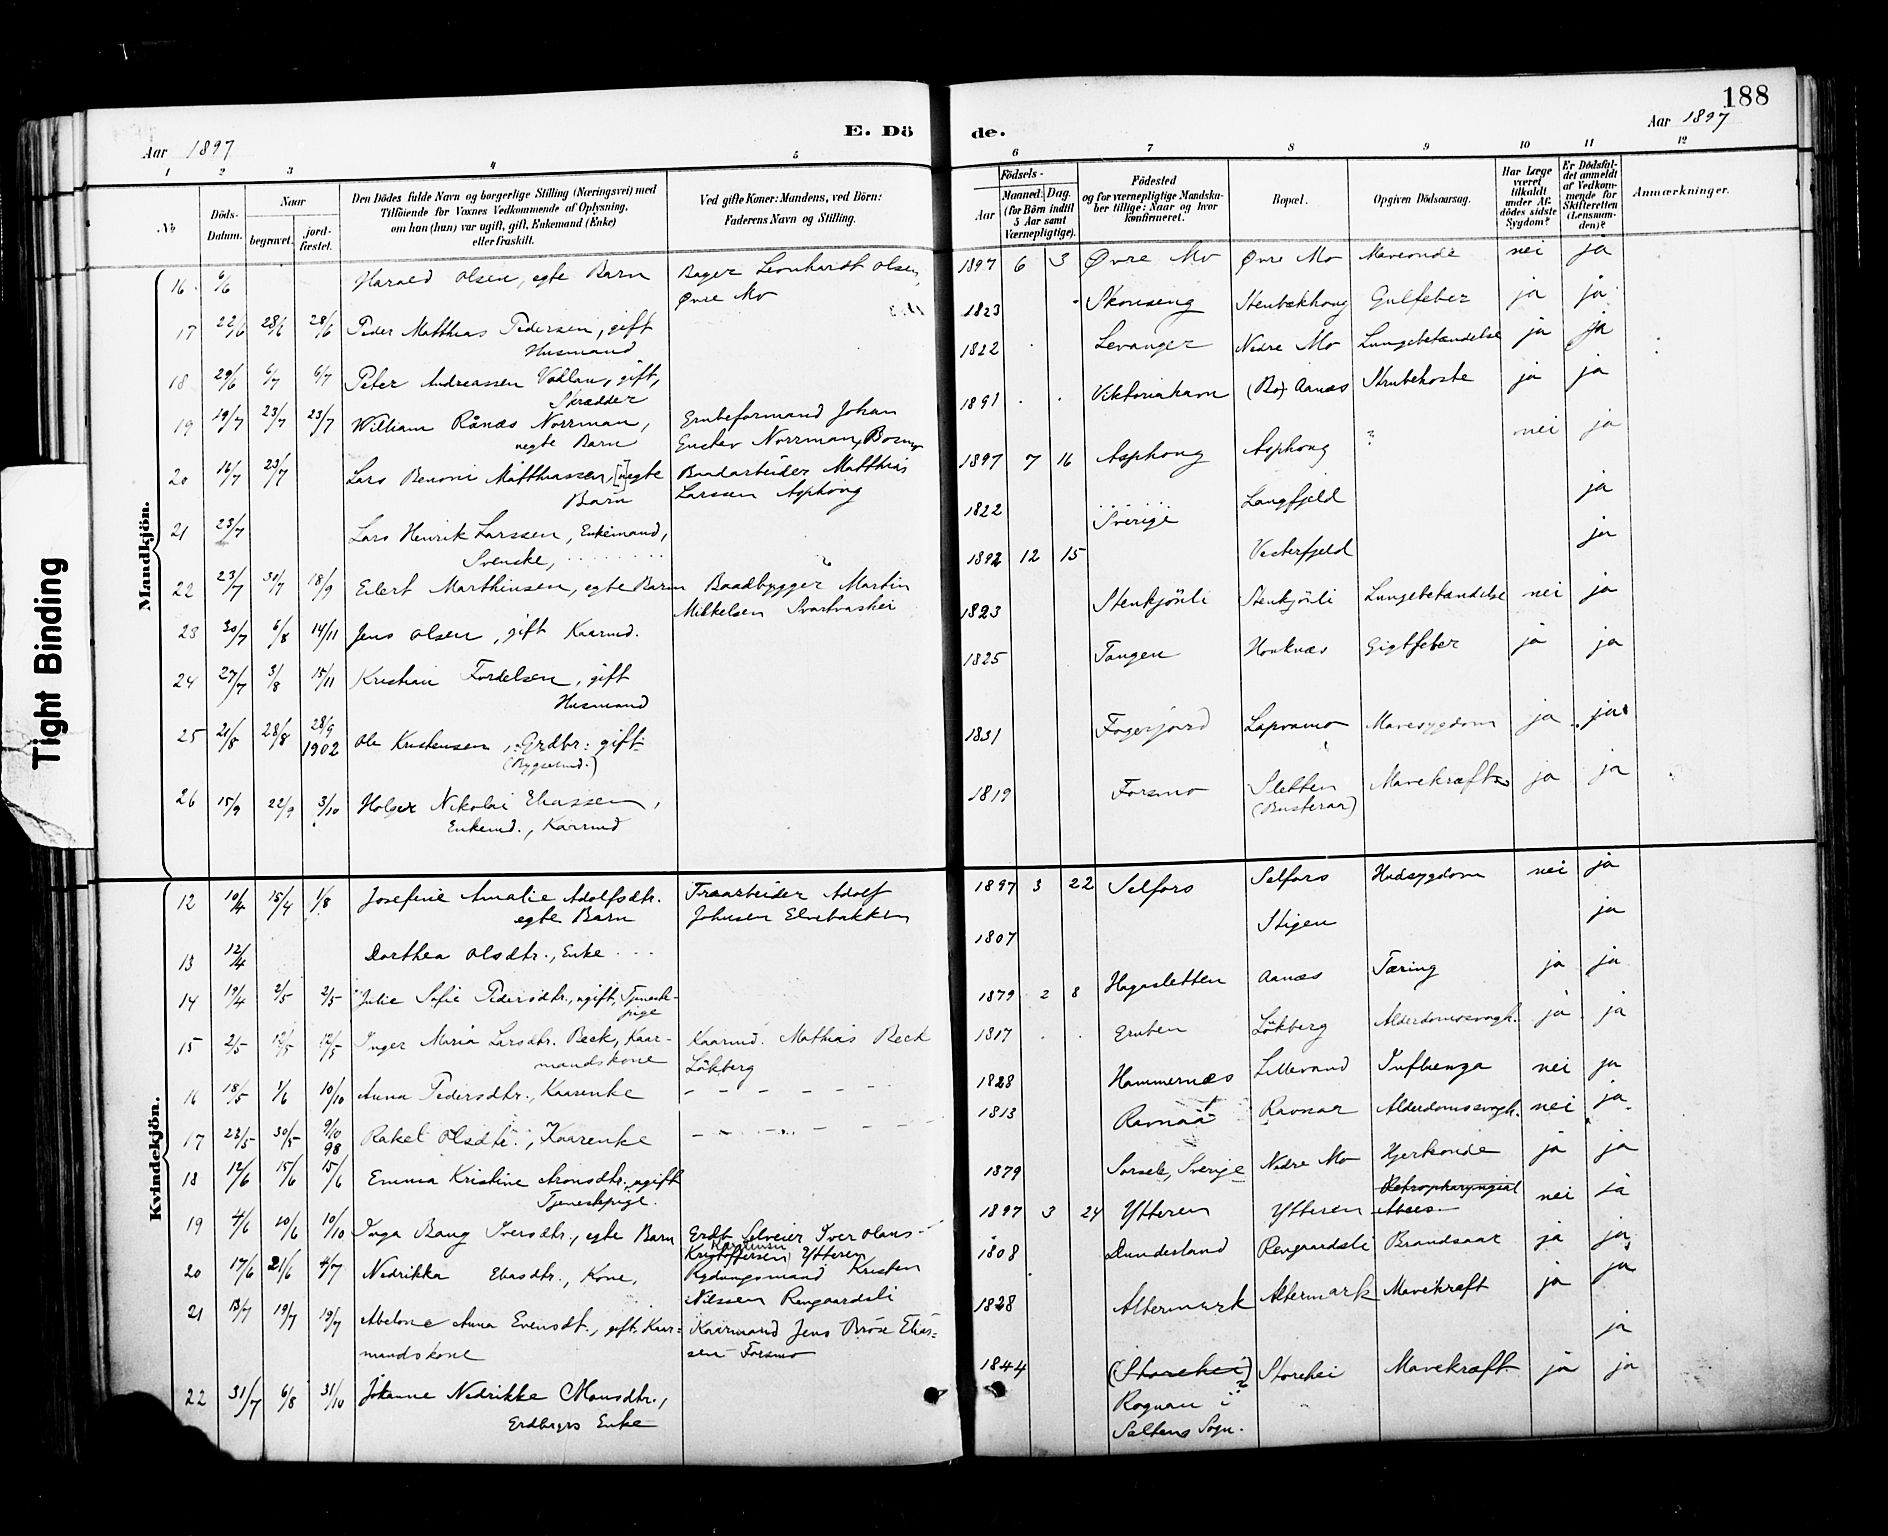 188
Aar 1897
E. Dö
de.
Aar 1897
1 2 3 4 5 6 7 8 9 10 11 12
No
Döds-Datum.
Naar
begravet.
jord-fæstet.
Den Dödes fulde Navn og borgerlige Stilling (Næringsvei) med
Tilföiende for Voxnes Vedkommende af Oplysning,
om han (hun) var ugift, gift, Enkemand (Enke)
eller fraskilt.
Ved gifte Koner: Mandens, ved Börn:
Faderens Navn og Stilling.
Födsels-
Aar
Maaned. Dag.
(for Börn indtil
5 Aar samt
Værnepligtige).
Födested
og for værnepligtige Mandska-
ber tillige: Naar og hvor
konfirmeret.
Bopæl.
Opgiven Dödsaarsag.
Har Læge
været
tilkaldt
under Af-
dödes sidste
Sygdom?
Er Dödsfal-
det anmeldt
af Vedkom-
mende for
Skifteretten
(Lensman-
den)?
Anmærkninger.
Mandkjön.
16 6/6 Harald Olsen, egte Barn Bager Leonhardt Olsen, 1897 6 3 Övre Mo Övre Mo Maveonde nei ja
Övre Mo
17 22/6 28/6 28/6 Peder Matthias Pedersen, gift 1823 Skonseng Stenbækhoug Gulfeber ja ja
Husmand
18 29/6 6/7 6/7 Peter Andreassen Vollan, gift, 1822 Levanger Nedre Mo Lungebetændelse ja ja
Skrædder
19 19/7 23/7 23/7 William Rånæs Norrman, Grubeformand Johan 1891 Viktoriahavn (Bo) Aanæs Strubehoste ja ja
uegte Barn Gustav Norrman, Bosmo
20 16/7 23/7 Lars Benoni Matthiassen, [u]egte Baadarbeider Matthias 1897 7 16 Asphoug Asphoug ? nei ja
Barn Larssen Asphoug
21 23/7 Lars Henrik Larssen, Enkemand, 1822 Sverige Langfjeld ja
Svenske,
22 23/7 30/7 18/9 Eilert Marthinsen, egte Barn Baadbygger Martin 1892 12 15 Vesterfjeld ja
Mikkelsen Svartvashei
23 30/7 6/8 14/11 Jens Olsen, gift Kaarmd. 1823 Stenkjönli Stenkjönli Lungebetændelse nei ja
24 27/7 3/8 15/11 Kristian Fordelsen, gift 1825 Tangen Hauknæs Gigtfeber ja ja
Husmand
25 21/8 28/8 28/9 1902 Ole Kristensen, Grdbr: gift 1831 Fagerjord Lapvamo Mavesygdom ja ja
(Bygselmd.)
26 15/9 22/9 3/10 Holger Nikolai Eliassen, 1819 Forsmo Sletten Mavekræft ja ja
Enkemd., Kaarmd (Busterar)
Kvindekjön.
12 10/4 15/4 1/8 Josefine Amalie Adolfsdtr. Træarbeider Adolf 1897 3 22 Selfors Selfors Hudsygdom nei ja
egte Barn Johnsen Elvebakken
13 12/4 Dorthea Olsdtr., Enke 1807 Stigen ja
14 19/4 2/5 2/5 Julie Sofie Pedersdtr., ugift, Tjeneste- 1879 2 8 Hagasletten Aanæs Tæring ja ja
pige
15 2/5 12/5 12/5 Inger Maria Larsdtr. Beck, Kaar- Kaarmd. Mathias Beck 1817 Gruben Lökberg Alderdomssvagh. ja ja
mandskone Lökberg
16 18/5 1/6 10/10 Anna Pedersdtr., Kaarenke 1828 Hammernæs Lillevand Influenza nei ja
17 23/5 30/5 9/10 98 Rakel Olsdtr., Kaarenke 1813 Ravnaå Ravnaa Alderdomssvagh. nei ja
18 12/6 15/6 15/6 Emma Kristine Aronsdtr., ugift 1879 Sorsele, Sverige Nedre Mo Hjerteonde ja ja
Tjenestepige.
19 4/6 10/6 10/10 Inga Bang Iversdtr., egte Barn Grdbr. Selveier Iver Olaus 1897 3 24 Ytteren Ytteren Retropharyngial Absces nei ja
Kristoffersen Ytteren
20 17/6 21/6 4/7 Nedrikka Eliasdtr., Kone, Rydningsmand Kristen 1808 Dunderland Rengaardsli Brandsaar ja ja
Nilssen Rengaardsli
21 13/7 19/7 19/7 Abelone Anna Evensdt., gift, Kaar- Kaarmand Jens Bröse Elias- 1828 Altermark Altermark Mavekræft ja ja
mandskone sen Forsmo ja
22 31/7 6/8 31/10 Johanne Nedrikke Monsdtr., 1844 (Storehei) Storehei Mavekræft ja ja
Grdbrgrs Enke Rognan i
Saltens Sogn.
Tight Binding